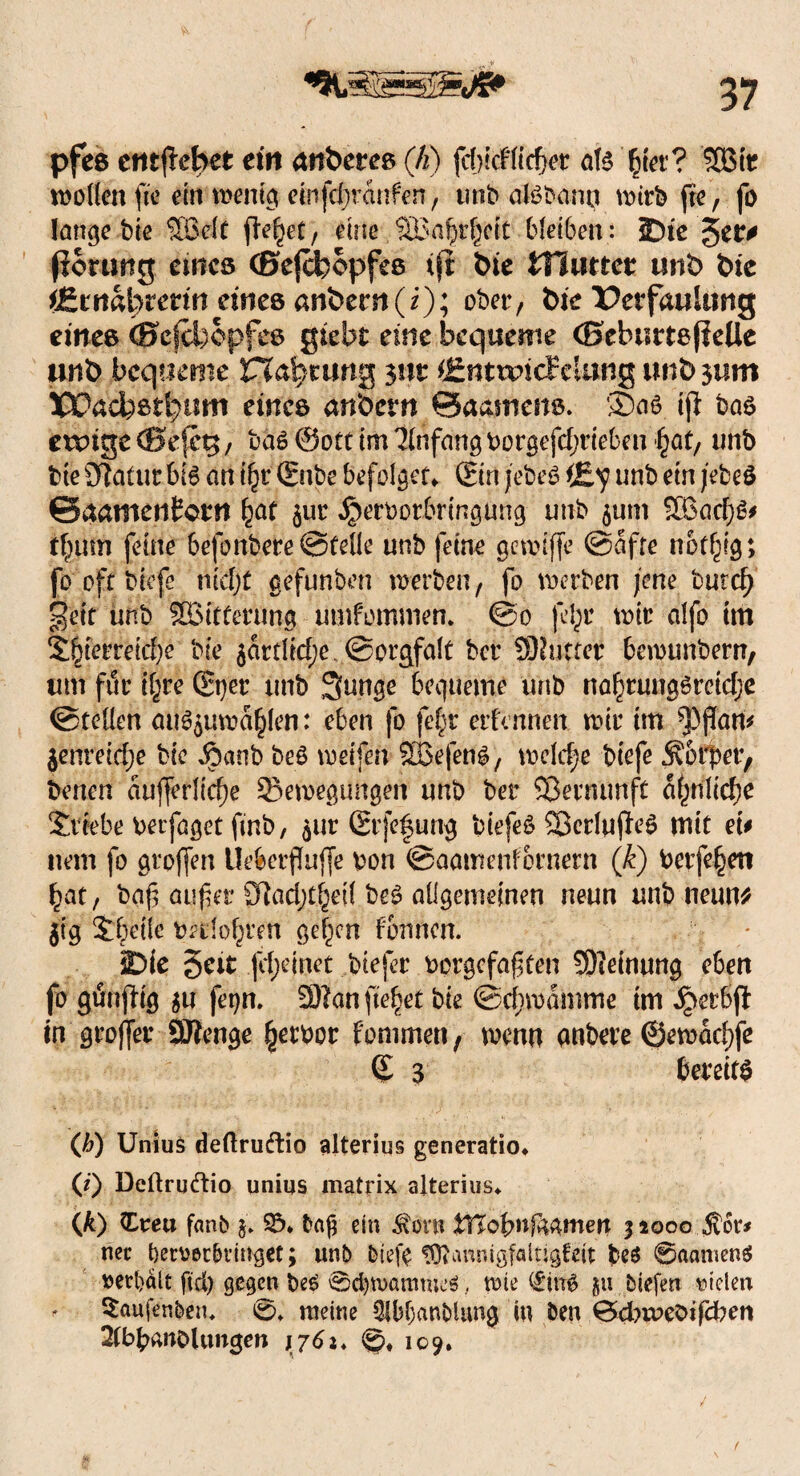 37
pfes entstehet ein anderes (h) schicklicher als hier? Wir
wollen sie ein wenig einschränken, und alsdann wird sie, so
lange die Welt stehet, eine Wahrheit bleiben: Die Zer-
störung eines Geschöpfes ist die Mutter und die
Ernährerin eines andern (i); oder, die Verfaulung
eines Geschöpfes giebt eine bequeme Geburtsstelle
und bequeme Nahrung zur Entwickelung und zum
Wachsthum eines andern Saamens. Das ist das
ewige Gesetz, das Gott im Anfang vorgeschrieben hat, und
die Natur bis an ihr Ende befolget. Ein jedes Ey und ein jedes
Saamenkorn hat zur Hervorbringung und zum Wachs-
thum seine besondere Stelle und seine gewisse Säfte nöthig;
so oft diese nicht gefunden werden, so werden jene durch
Zeit und Witterung umkommen. So sehr wir also im
Thierreiche die zärtliche Sorgfalt der Mutter bewundern,
um für ihre Eyer und Junge bequeme und nahrungsreiche
Stellen auszuwählen: eben so sehr erkennen wir im Pflan-
zenreiche die Hand des weisen Wesens, welche diese Körper,
denen äusserliche Bewegungen und der Vernunft ähnliche
Triebe versaget sind, zur Ersetzung dieses Verlustes mit ei-
nem so grossen Ueberflusse von Saamenkörnern (k) versehen
hat, daß außer Nachtheil des allgemeinen neun und neun-
zig Theile verlohren gehen können.
Die Zeit scheinet dieser vorgefaßten Meinung eben
so günstig zu seyn. Man siehet die Schwämme im Herbst
in grosser Menge hervor kommen, wenn andere Gewächse
C 3 bereits
(h) Unius destructio alterius generatio.
(i) Destructio unius matrix alterius.
(k) Treu fand z. B. daß ein Korn Mohnsaamen 32000 Kör-
ner hervorbringet; und diese Mannigfaltigkeit des Saamens
verhält sich gegen des Schwammes, wie Eins zu diesen vielen
Tausenden. S. meine Abhandlung in den Schwedischen
Abhandlungen 1762. S. 109.